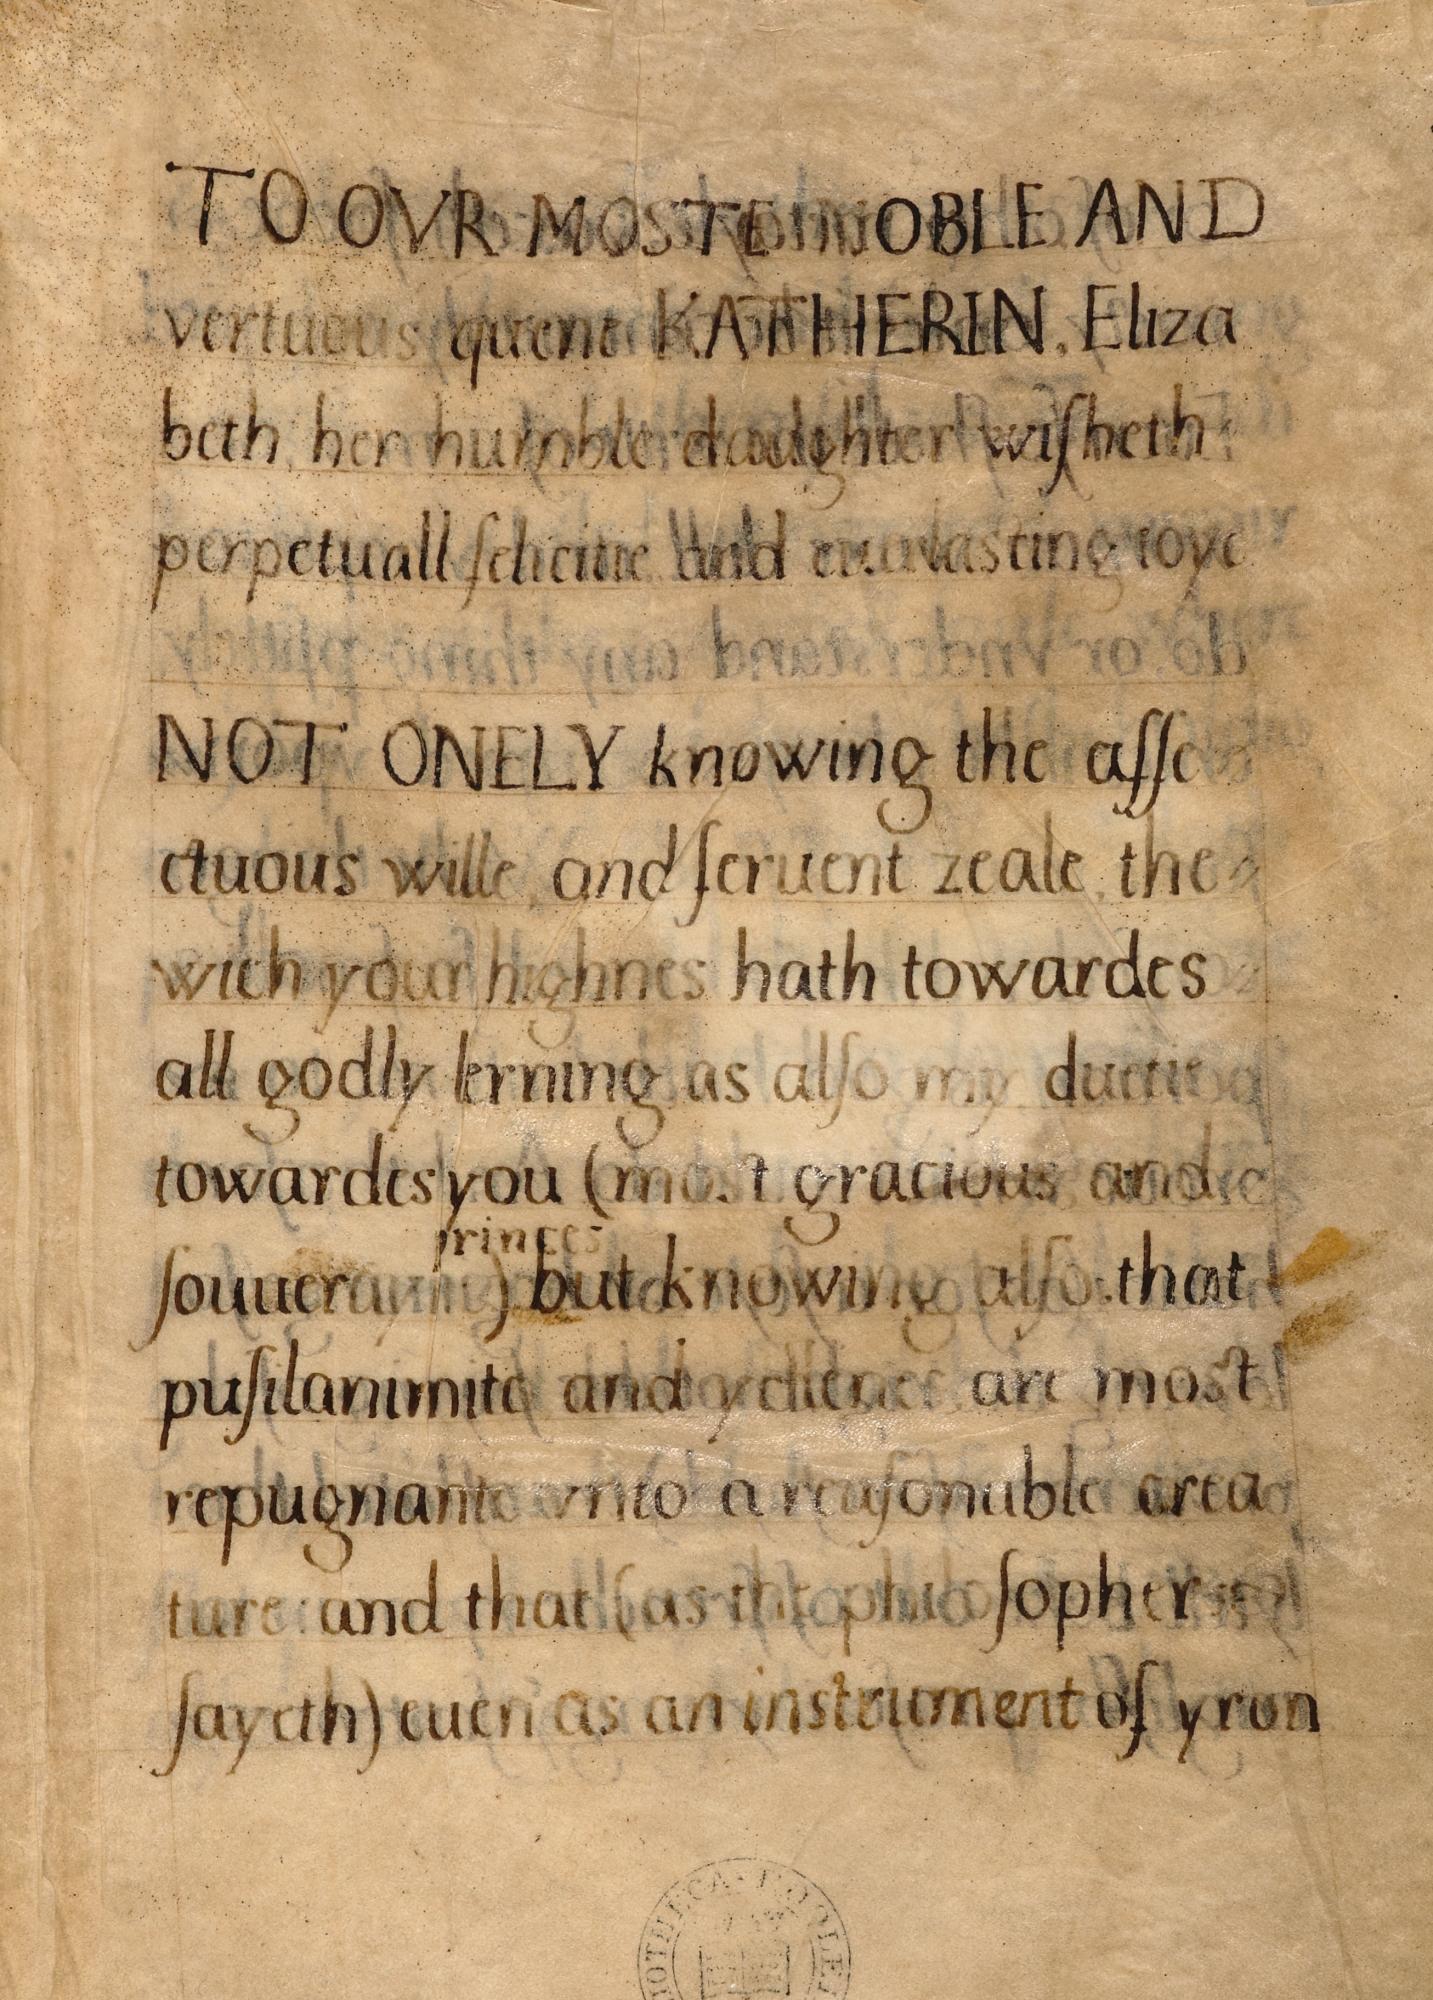 TO OVR MOSTE NOBLE AND
vertuous quene KATHERIN, Eliza
beth, her humble daughter wiſheth
perpetuall felicitie and euerlasting ioye
NOT ONELY knowing the affe
ctuous wille, and feruent zeale, the
wich your highnes hath towardes
all godly lerning as alſo my duetie
towardes you (most gracious and
princes
ſouuerayne) but knowing alſo that
puſilanimite and ydlenes are most
repugnante vnto a reaſonable crea
ture: and that (as the philoſopher
ſayeth) euen as an instrument of yron
BIBLIOTHECA BODLEIANA